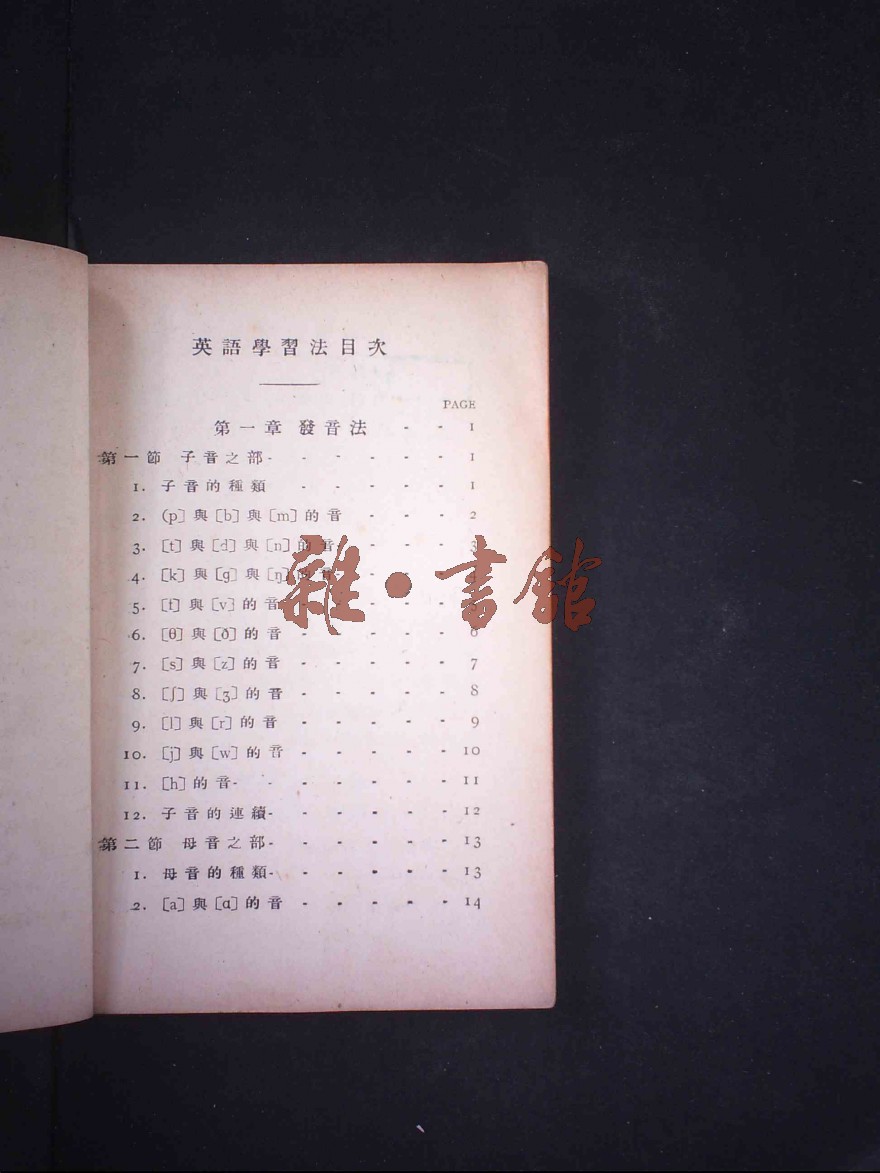 英語學習法目次
PAGE
第一章 發音法 - - 1
第一節 子音之部- - - - - - 1
1. 子音的種類 - - - - - 1
2. (p]與[b]與[m]的音 - - - 2
3. [t]與[d]與[n]的音 3
4. [k]與[g]與[ŋ]的音 -
5. [f]與[v]的音
6. [θ]與[ð]的音 - - - - - 6
7. [s]與[z]的音 - - - - - 7
8. [ʃ]與[ʒ]的音 - - - - - 8
9. [l]與[r]的音 - - - - - 9
10. [j]與[w]的音 - - - - - 10
11. [h]的音- - - - - - - 11
12. 子音的連續- - - - - - 12
第二節 母音之部- - - - - - 13
1. 母音的種類- - - - - - 13
2. [a]與[ɑ]的音 - - - - - 14
雜·書館